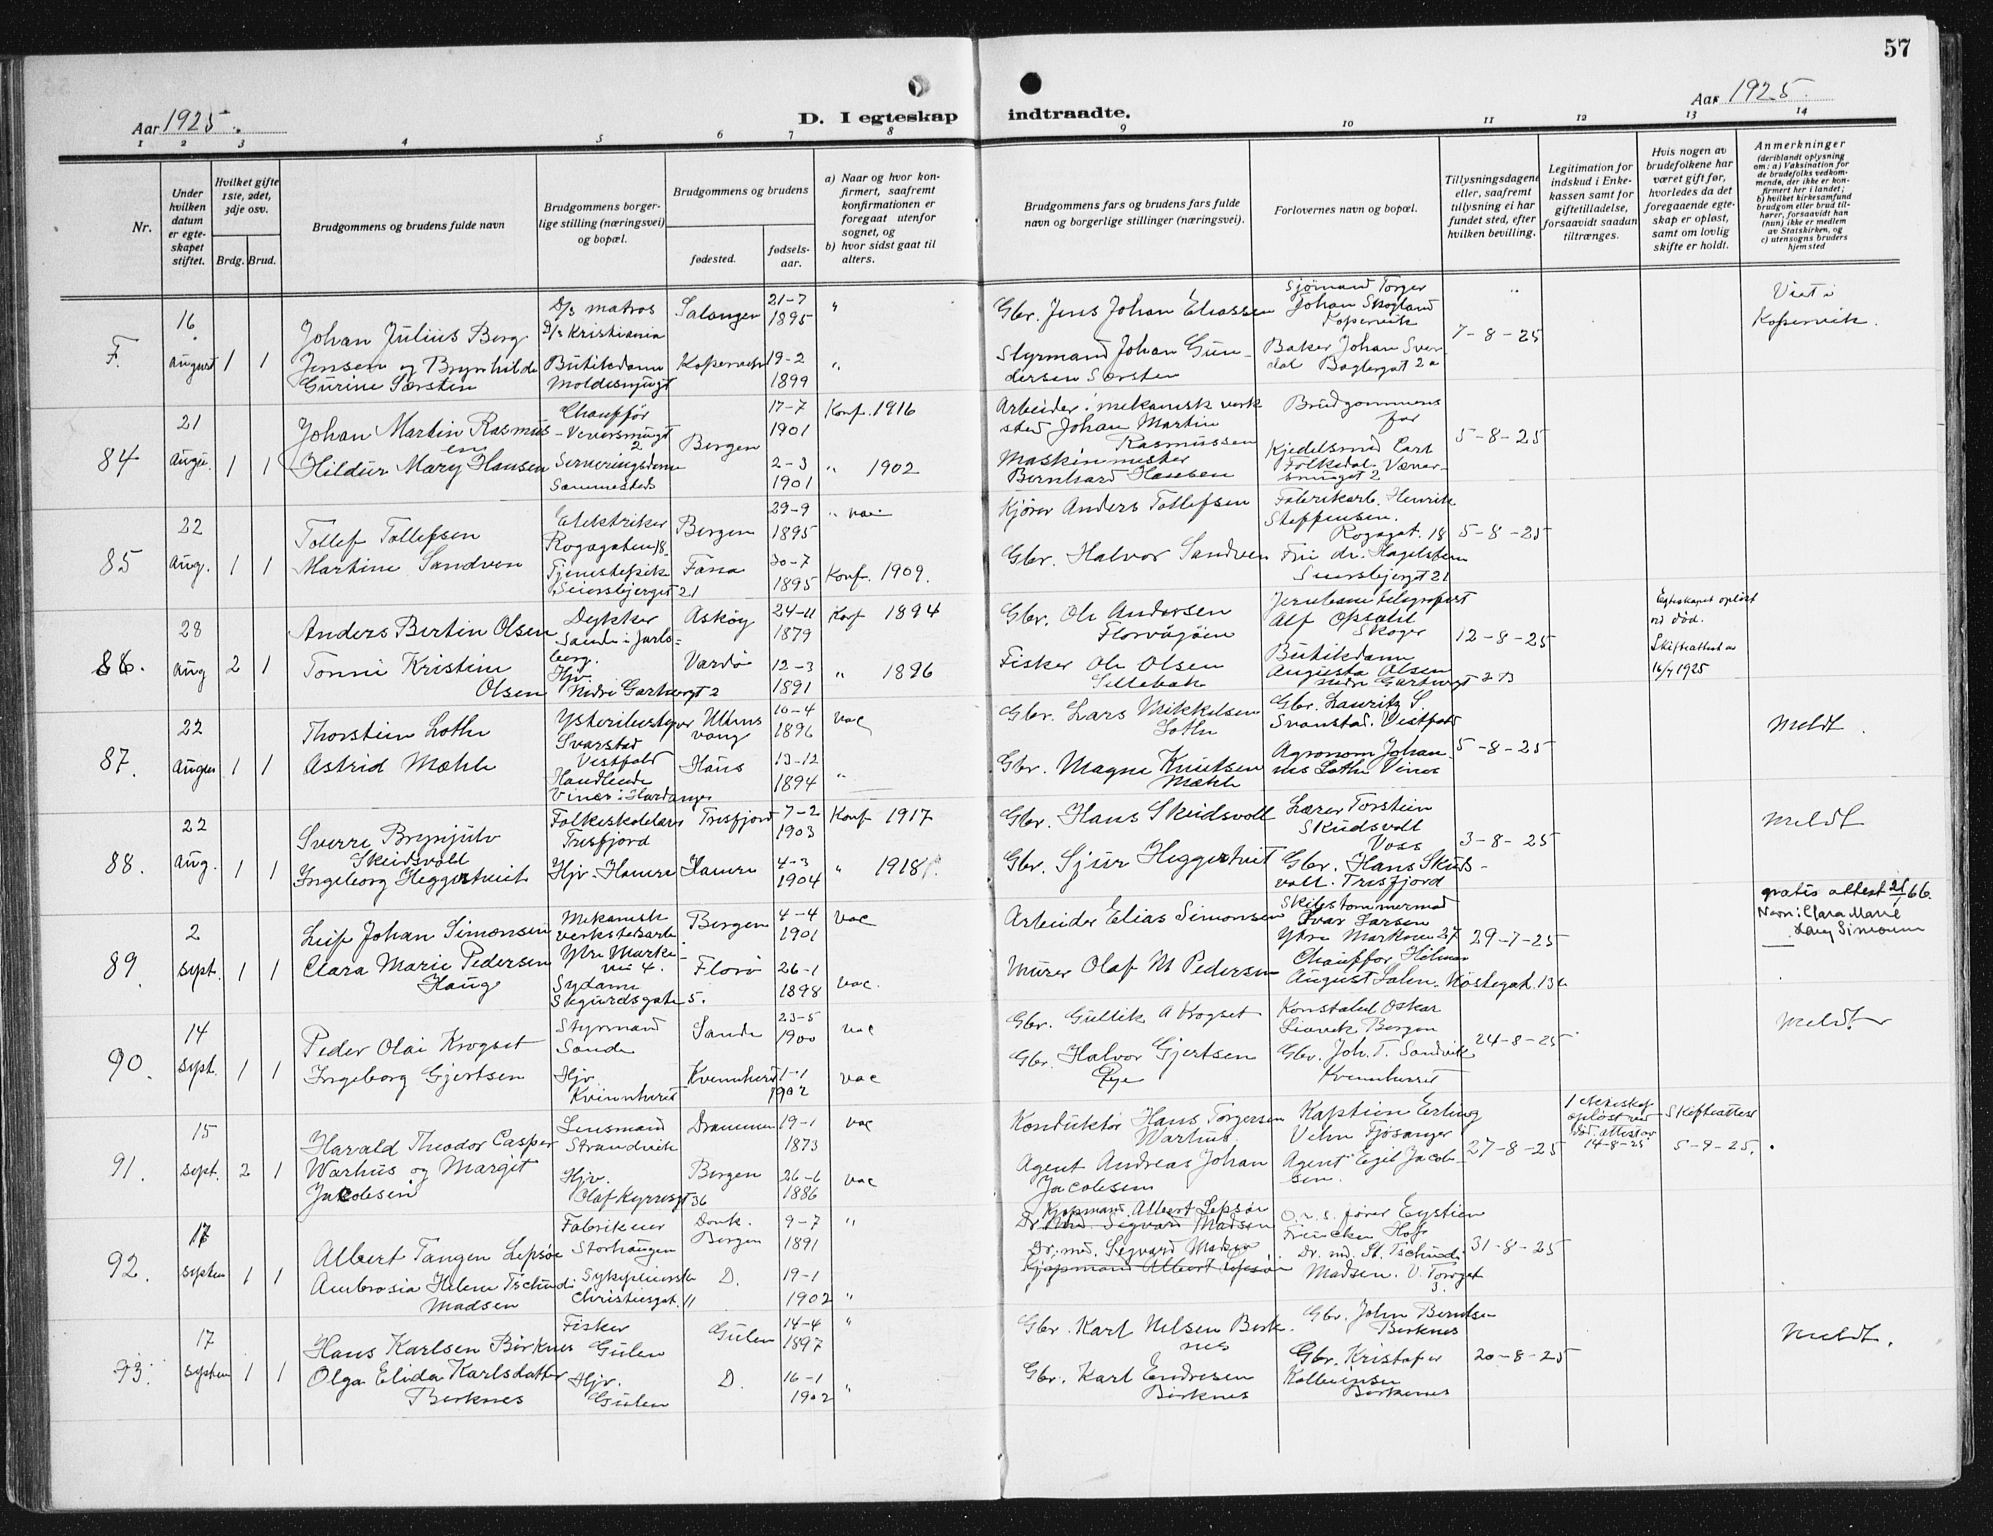 57
Aar 1925.
D. I egteskap indtraadte.
Aar 1925.
1 2 3 4 5 6 7 8 9 10 11 12 13 14
Nr.
Under hvilken datum er egteskapet stiftet.
Hvilket gifte 1ste, 2det, 3dje osv.
Brdg. Brud.
Brudgommens og brudens fulde navn
Brudgommens borgerlige stilling (næringsvei) og bopæl.
Brudgommens og brudens
fødested.
fødselsaar.
a) Naar og hvor konfirmert, saafremt konfirmationen er foregaat utenfor sognet, og
b) hvor sidst gaat til alters.
Brudgommens fars og brudens fars fulde navn og borgerlige stillinger (næringsvei).
Forlovernes navn og bopæl.
Tillysningsdagene eller, saafremt tillysning ei har fundet sted, efter hvilken bevilling.
Legitimation for indskud i Enkekassen samt for giftetilladelse, forsaavidt saadan tiltrænges.
Hvis nogen av brudefolkene har været gift før, hvorledes da det foregaaende egteskap er opløst, samt om lovlig skifte er holdt.
Anmerkninger
(deriblandt oplysning om: a) Vaksination for de brudefolks vedkommende, der ikke er konfirmert her i landet; b) hvilket kirkesamfund brudgom eller brud tilhører, forsaavidt han (hun) ikke er medlem av Statskirken, og c) utensogns bruders hjemsted
F. 16 august 1 1
Johan Julius Berg
Jensen og Brynhilde
Gurine Sørsten
D/s matros
D/s Kristiania
Butikdame
Salangen
Kopervik
21-7
1895
19-2
1899
Gbr. Jens Johan Eliassen
Styrmand Johan Gundersen Sørsten
Sjømand Torger
Johan Skogland
Kopervik
Baker Johan Sverdal
7-8-25
Viet i
Kopervik.
84 21 Augu. 1 1
Johan Martin Rasmussen
Hildur Mary Hansen
Chauffør
Serveringsdame
Sammesteds
Bergen
17-7
1901
2-3
1901
Konf. 1916
" 1902
Arbeider i mekanisk verksted Johan Martin
Rasmussen
Maskinmester
Bernhard Hansen
Brudgommens
far
Kjedelsmed Carl
Folkedal
5-8-25
85 22 Aug. 1 1
Tollef Tollefsen
Martine Sandven
Elektriker
Rogagaten 18
Tjenestepike
Seiersbjerget 21
Bergen
Fana
29-9
1895
30-7
1895
" vac
Konf. 1909.
Kjører Anders Tollefsen
Gbr. Halvor Sandven
Fabrikarb. Henrik
Steffensen.
Rogagat. 18
Fru dr. Hagelsteen
Seiersbjerget 21
5-8-25
86. 28 Aug 2 1
Anders Bertin Olsen
Tonni Kristine
Olsen
Dykker
Sande i Jarlsberg.
Hjv.
Nedre Garhaugt 2
Askøy
Vardø
24-11
1879
12-3
1891
Konf 1894
" 1896
Gbr. Ole Andersen
Florvågøen
Fisker Ole Olsen
Sellebak
Jernbanetelegrafist
Alf Opsahl
Skoger
Butikdame
Augusta Olsen
12-8-25
Egteskapet opløst
ved død.
Skifteattest av
16/7 1925
87. 22 Augus 1 1
Thorstein Lothe
Astrid Mæhle
Svarstad
Vestfold
Handlende
Vines i Hardanger
Ullensvang
Haus
10-4
1896
13-12
1894
vac
"
Gbr. Lars Mikkelsen
Lothe
Gbr. Magne Knutsen
Mæhle
Gbr. Lauritz S.
Svarstad. Vestfold
Agronom Johannes Lothe Vines
5-8-25
Meldt.
88. 22 Aug. 1 1
Sverre Brynjulv
Skeidsvoll
Ingeborg Heggertveit
Folkeskolelærer
Tresfjord
Hjv. Hamre
Tresfjord
Hamre
7-2
1903
4-3
1904
Konf 1917
" 1918
Gbr. Hans Skeidsvoll
Gbr. Sjur Heggertveit
Lærer Torstein
Skeidsvoll
Voss
Gbr. Hans Skeidsvoll. Tresfjord
3-8-25
Meldt
89. 2 sept. 1 1
Leif Johan Simonsen
Clara Marie Pedersen
Haug
Mekanisk
verkstedsarb.
Ytre Markevei 4.
Sydame
Sigurdsgate 5.
Bergen
Florø
4-4
1901
26-1
1898
vac
vac.
Arbeider Elias Simonsen
Murer Olaf M Pedersen
Skibstømmermand
Ivar Larsen
Ytre Markevei 27
Chauffør Hilmar
August Salen. Kostegat. 13c
29-7-25
gratis attest 21/1 66.
Navn: Clara Marie
Haug Simonsen
90. 14 sept. 1 1
Peder Olai Krogset
Ingeborg Gjertsen
Styrmand
Sande
Hjv.
Kvinnherred
Sande
Kvinnherred
23-5
1900
1-1
1902
vac
vac
Gbr. Gullik A Krogset
Gbr. Halvor Gjertsen
Øye
Konstabel Oskar
Bergen
Gbr. Joh. T. Sandvik
Kvinnherred
24-8-25
Meldt
91. 15 sept. 2 1
Harald Theodor Casper
Warhus og Margit
Jacobsen
Lensmand
Strandvik
Hjv.
Olaf Kyrresgt 36
Drammen
Bergen
19-1
1873
26-6
1886
vac
vac
Konduktør Hans Torgersen
Warhus.
Agent Andreas Johan
Jacobsen
Kaptein Erling
Velin Fjøsanger
Agent Egil Jacobsen.
27-8-25
1 Ekteskap
opløst ved
død. attest av
14-8-25
Skifteattest
5-9-25.
92. 17 Septem 1 1
Albert Tangen Lepsøe
Ambrosia Helene Tschudi
Madsen
Fabrikeier
Storhaugen
Sykepleierske
Christiesgat. 11
Bergen
D.
9-7
1891
19-1
1902
"
"
Kjøpmand. Albert Lepsøe
Dr. med. Segvard Madsen
Dr. med. Segvard Madsen
Kjøpmand Albert Lepsøe
O.r.s. fører Eystein
Fricken Hof
Dr. med. St. Tschudi
Madsen. V. Torvget
3.
31-8-25
93. 17 Septem 1 1
Hans Karlsen Birknes
Olga Elida Karlsdatter
Birknes
Fisker
Gulen
Hjv.
Gulen
Gulen
D.
14-4
1897
16-1
1902
"
"
Gbr. Karl Nilsen Birknes
Gbr. Karl Endresen
Birknes
Gbr. John Berntsen
Birknes
Gbr. Kristofer
Kolbeinsen
Birknes
20-8-25
Meldt.